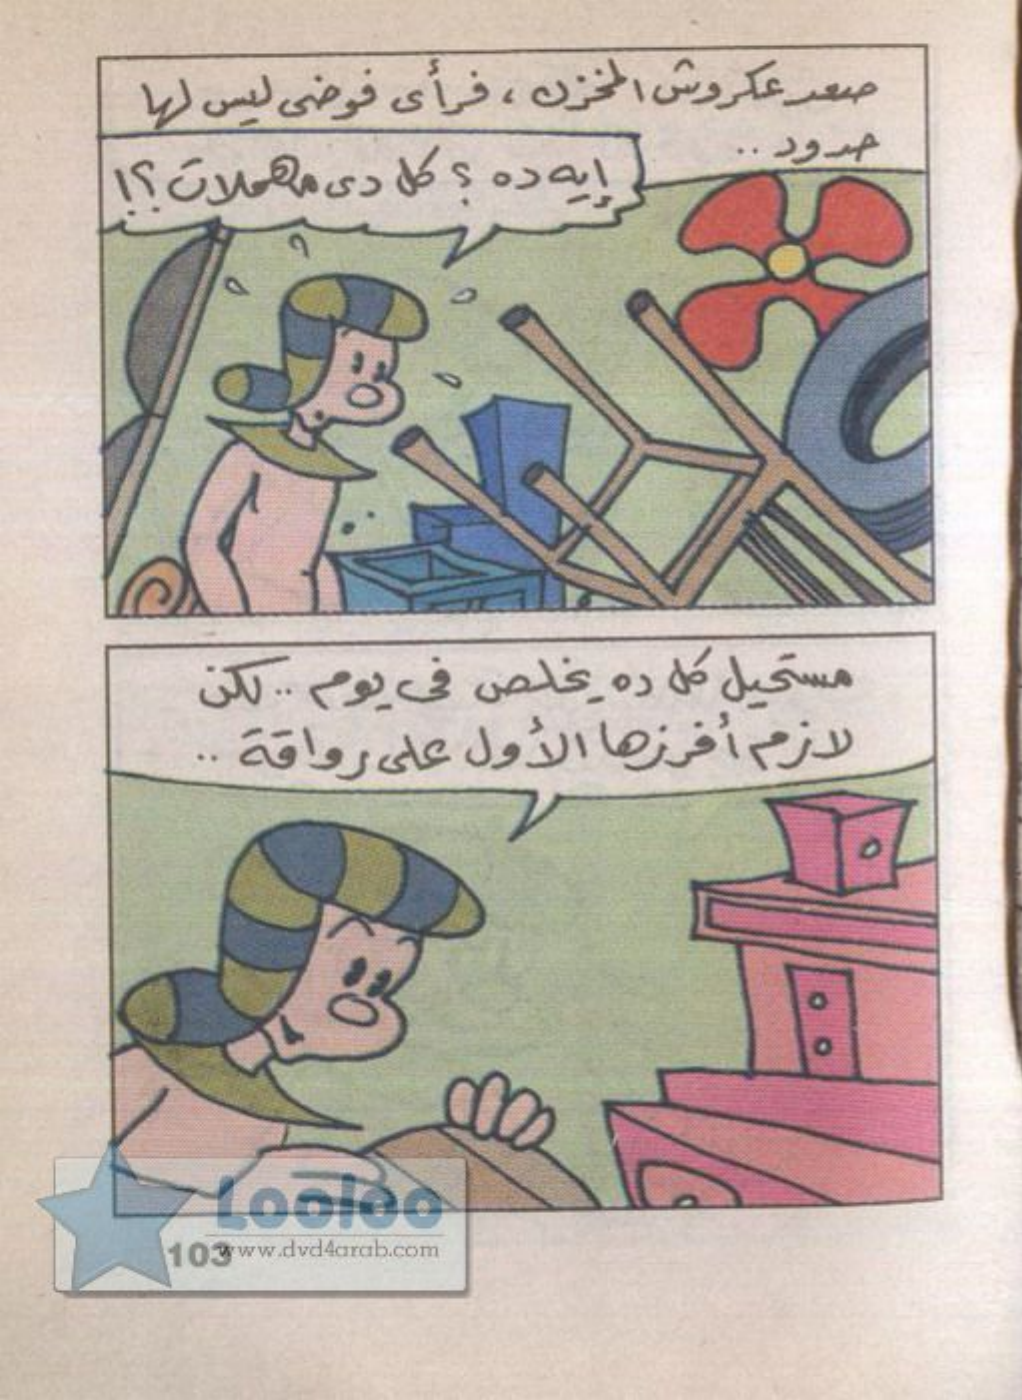 صعد عكروش المخزن ، فرأى فوضى ليس لها
حدود ..
إيه ده ؟ كل دى مهملات ؟!
مستحيل كل ده يخلص فى يوم .. لكن
لازم أفرزها الأول على رواقة ..
Looloo
103
www.dvd4arab.com